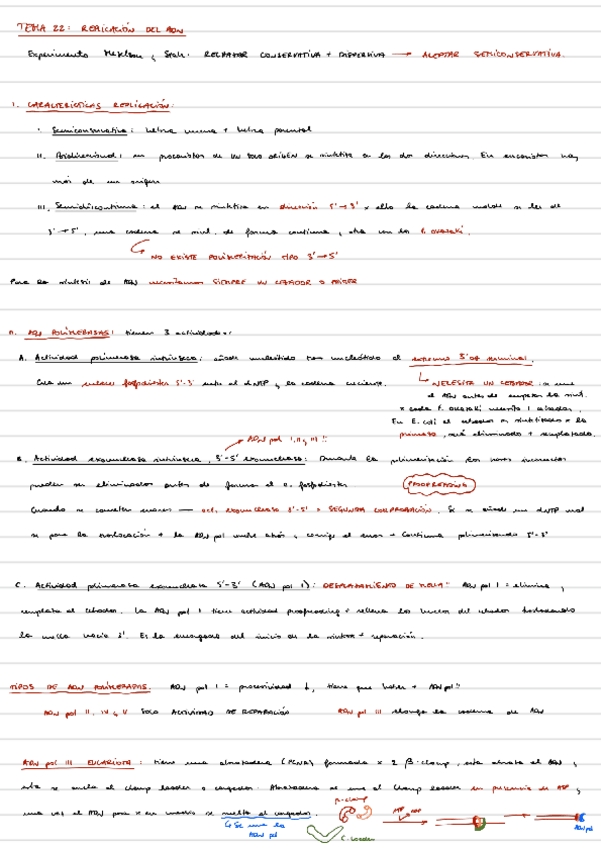 TEMA 22: REPLICACIÓN DEL ADN
Experimento Meselson y Stahl: RECHAZAR CONSERVATIVA + DISPERSIVA → ACEPTAR SEMICONSERVATIVA.
I. CARACTERÍSTICAS REPLICACIÓN:
I. Semiconservativa: hebra nueva + hebra parental
II. Bidireccional: en procariotas de UN SOLO ORIGEN se sintetiza en las dos direcciones. En eucariotas hay
más de un origen
III. Semidiscontinua: el ADN se sintetiza en dirección 5'→3' x ello la cadena molde se lee de
3'→5', una cadena se sint. de forma continua, otra con los F. OKAZAKI.
NO EXISTE POLIMERIZACIÓN TIPO 3'→5'
Para la síntesis de ADN necesitamos SIEMPRE UN CEBADOR O PRIMER
II. ADN POLIMERASAS: tienen 3 actividades:
A. Actividad polimerasa intrínseca: añade nucleótido tras nucleótido al extremo 3'OH terminal.
Crea un enlace fosfodiéster 5'-3' entre el dNTP y la cadena creciente.
NECESITA UN CEBADOR: se une
el ADN antes de empezar la sint.
x cada F. Okazaki necesito 1 cebador.
En E. coli el cebador es sintetizado x la
primasa, será eliminado + reemplazado.
ADN pol I, II y III !!
B. Actividad exonucleasa intrínseca, 3'-5' exonucleasa: Durante la polimerización los nt incorrectos
pueden ser eliminados antes de formar el e. fosfodiéster
PROOFREADING
Cuando se cometen errores — act. exonucleasa 3'-5' = SEGUNDA COMPROBACIÓN. Si se añade un dNTP mal
se para la translocación + la ADN pol vuelve atrás, corrige el error + continua polimerizando 5'-3'
C. Actividad exonucleasa 5'-3' (ADN pol I): DESPLAZAMIENTO DE MELLA = ADN pol I = elimina y
reemplaza el cebador. La ADN pol I tiene actividad proofreading + rellena los huecos del cebador trasladando
la mella hacia 3'. Es la encargada del inicio de la síntesis + reparación.
TIPOS DE ADN POLIMERASAS. ADN pol I = procesividad ↓, tiene que haber + ADN pol
ADN pol II, IV y V SOLO ACTIVIDAD DE REPARACIÓN
ADN pol III elonga la cadena de ADN
ADN pol III: tiene una abrazadera (PCNA) formada x 2 β-clamp, esta abraza el ADN y
esta se ancla al clamp loader o cargador. Abrazadera se une al clamp loader en presencia de ATP,
una vez el ADN se suelta el cargador.
Se une la
ADN pol
β-clamp
C. loader
ATP ADP
ADN pol